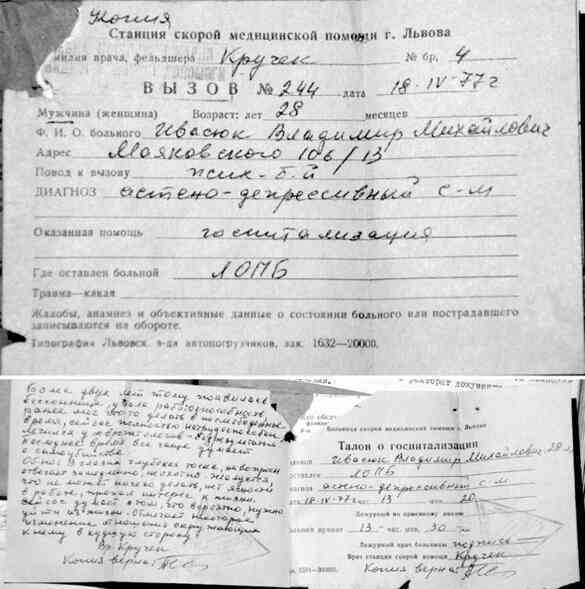 Копия
Станция скорой медицинской помощи г. Львова
милия врача, фельдшера Кручек № бр, 4
ВЫЗОВ № 244 дата 18-IV-77 г
Мужчина (женщина) Возраст: лет 28 месяцев
Ф. И. О. больного Ивасюк Владимир Михайлович
Адрес Маяковского 106/13
Повод к вызову псих-б-й
ДИАГНОЗ астено-депрессивный с-м
Оказанная помощь госпитализация
Где оставлен больной ЛОПБ
Травма—какая
Жалобы, анамнез и объективные данные о состоянии больного или пострадавшего
записываются на обороте.
Типография Львовск. з-да автопогрузчиков, зак. 1632—20000.
Более двух лет тому появилась
бессонница, упала работоспособность,
ранее мог много делать в послеобеденное
время, сейчас полностью нетрудоспособен
лечился у невропатологов - безрезультатно
последнее время все чаще думает
о самоубийстве.
Об-но: В глазах глубокая тоска, на вопросы
отвечает замедленно, негативен. Жалуется,
что не может ничего делать, нет ясности
в работе, пропал интерес к жизни.
сейчас думает о том, что вероятно, нужно
уйти из жизни. Отмечает некоторое
изменение отношения окружающих
к нему в худшую сторону.
Вр. Кручек
Копия верна
Станция скорой медицинской помощи г. Львова
Талон о госпитализации
Ивасюк Владимир Михайлович 28 л
ЛОПБ
астено-депрессивный с-м
18-IV-77 г 13 20
Дежурный по приемному
пункт 13 час. мин. 30
Дежурный врач больницы подпись
Врач станции скорой помощи Кручек
1584—20000. Копия верна